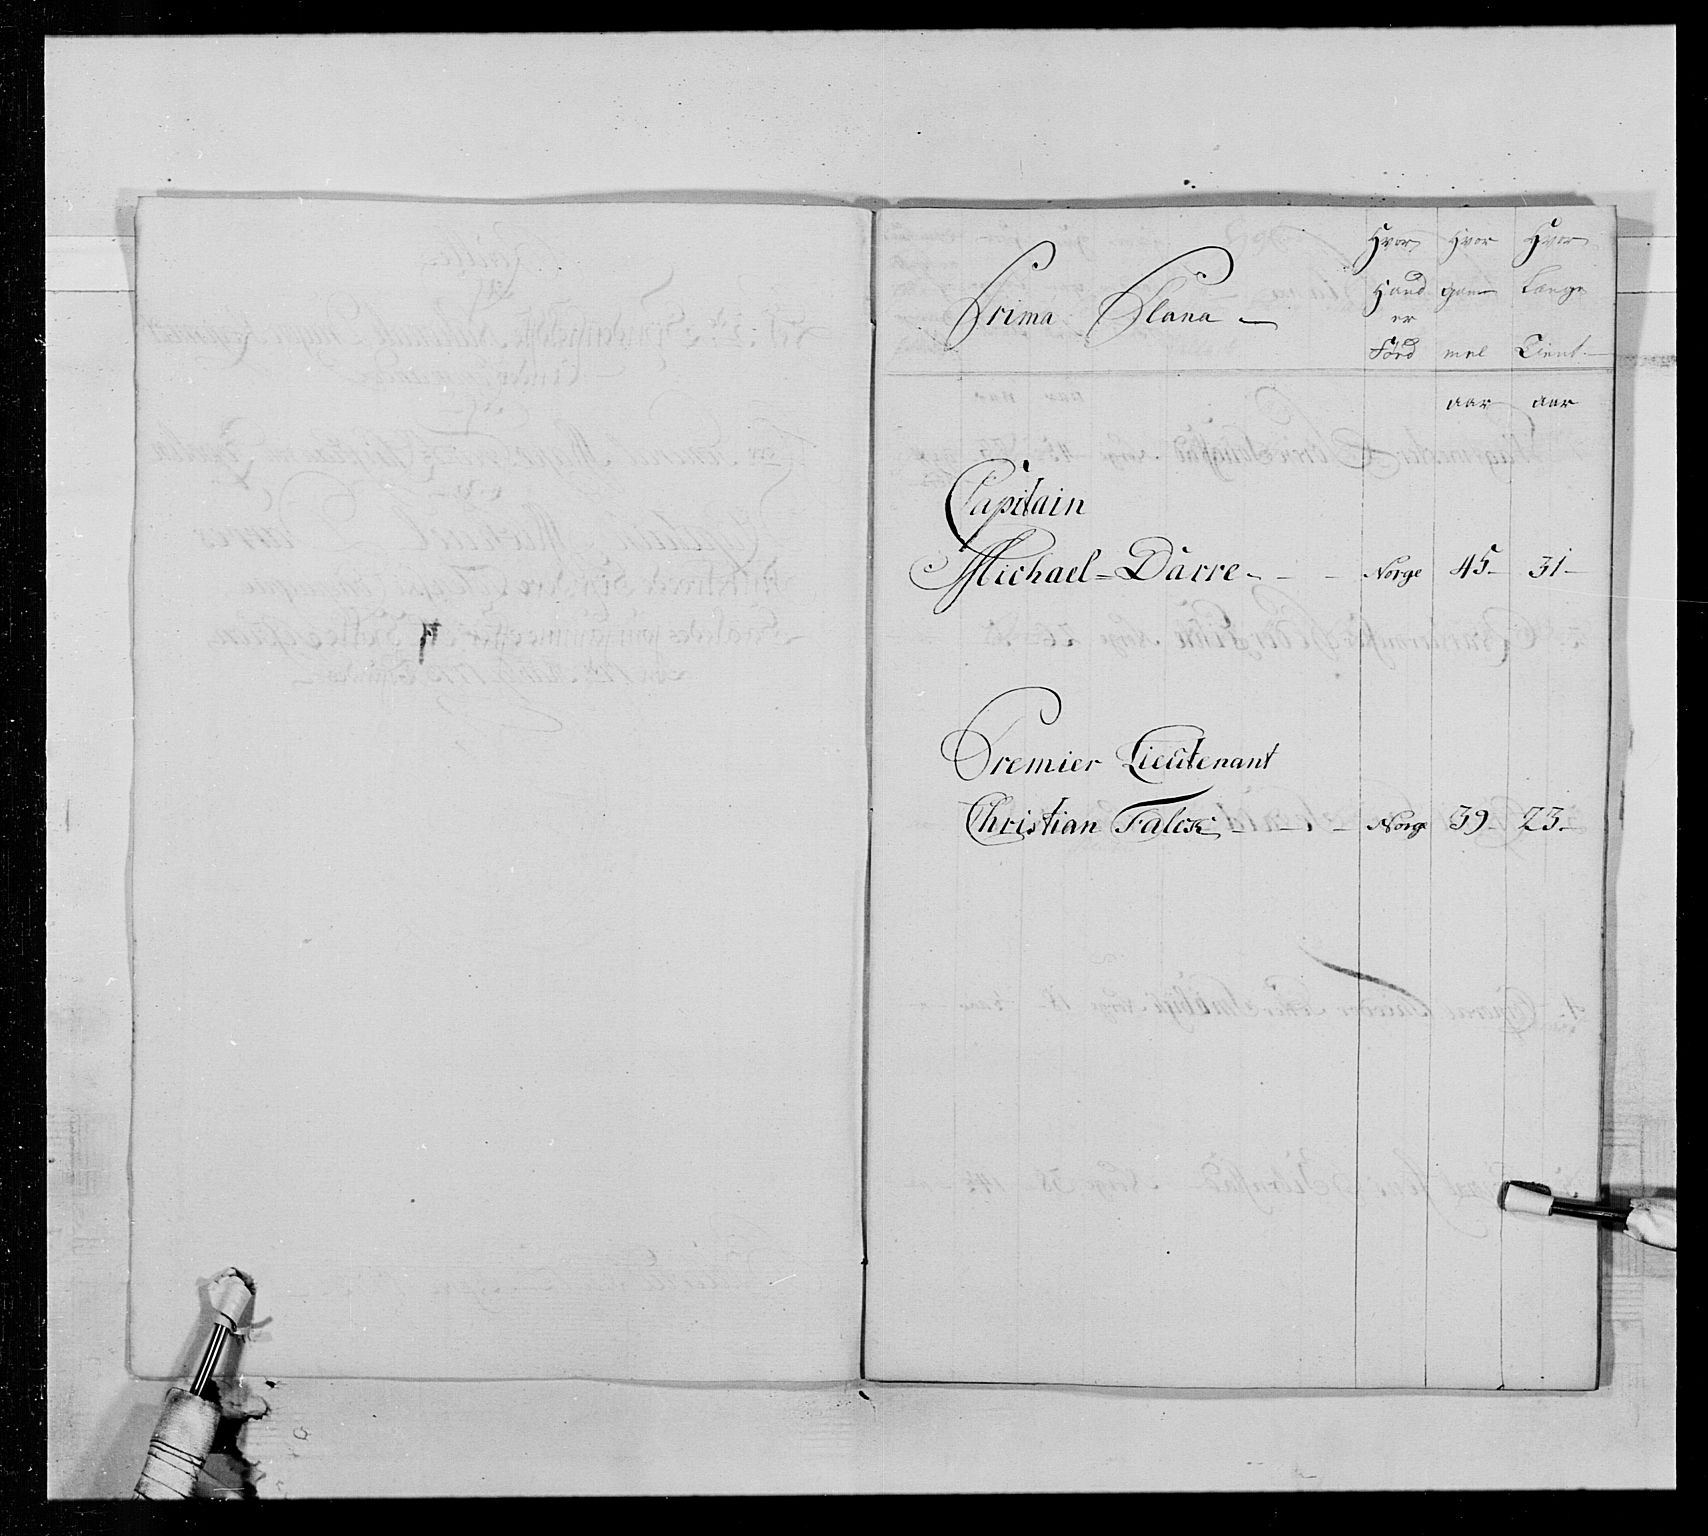 Prima Plana
Hvor Hvor Hvor
Hand gam Længe
er
Förd mel Tient
aar aar
Capitain
Michael Darre - - - Norge 45 - 31 -
Premier Lieutenant
Christian Falck - - - - Norge 39 - 23 -